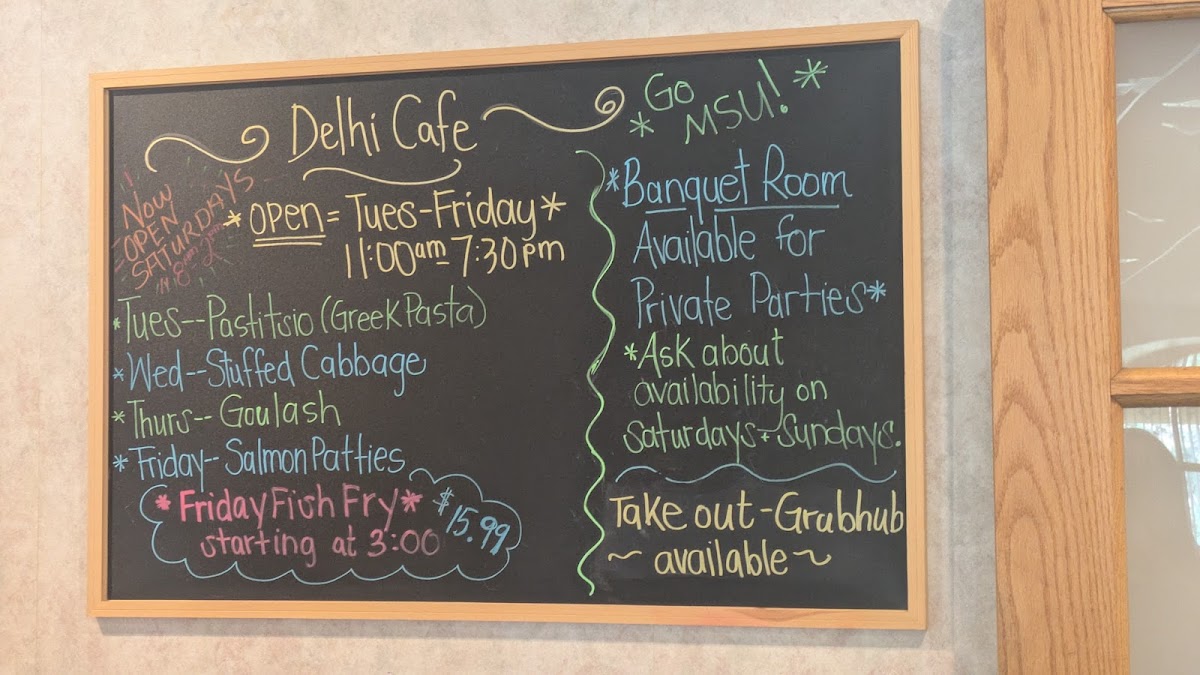 Delhi Cafe
NOW
OPEN
SATURDAYS
*OPEN= Tues-Friday*
11:00am-7:30pm
*Tues--Pastitsio (Greek Pasta)
*Wed--Stuffed Cabbage
*Thurs--Goulash
*Friday--Salmon Patties
*Friday Fish Fry*
starting at 3:00
$15.99
*Go MSU!*
*Banquet Room
Available for
Private Parties*
*Ask about
availability on
Saturdays+Sundays.
Take out-Grubhub
~available~